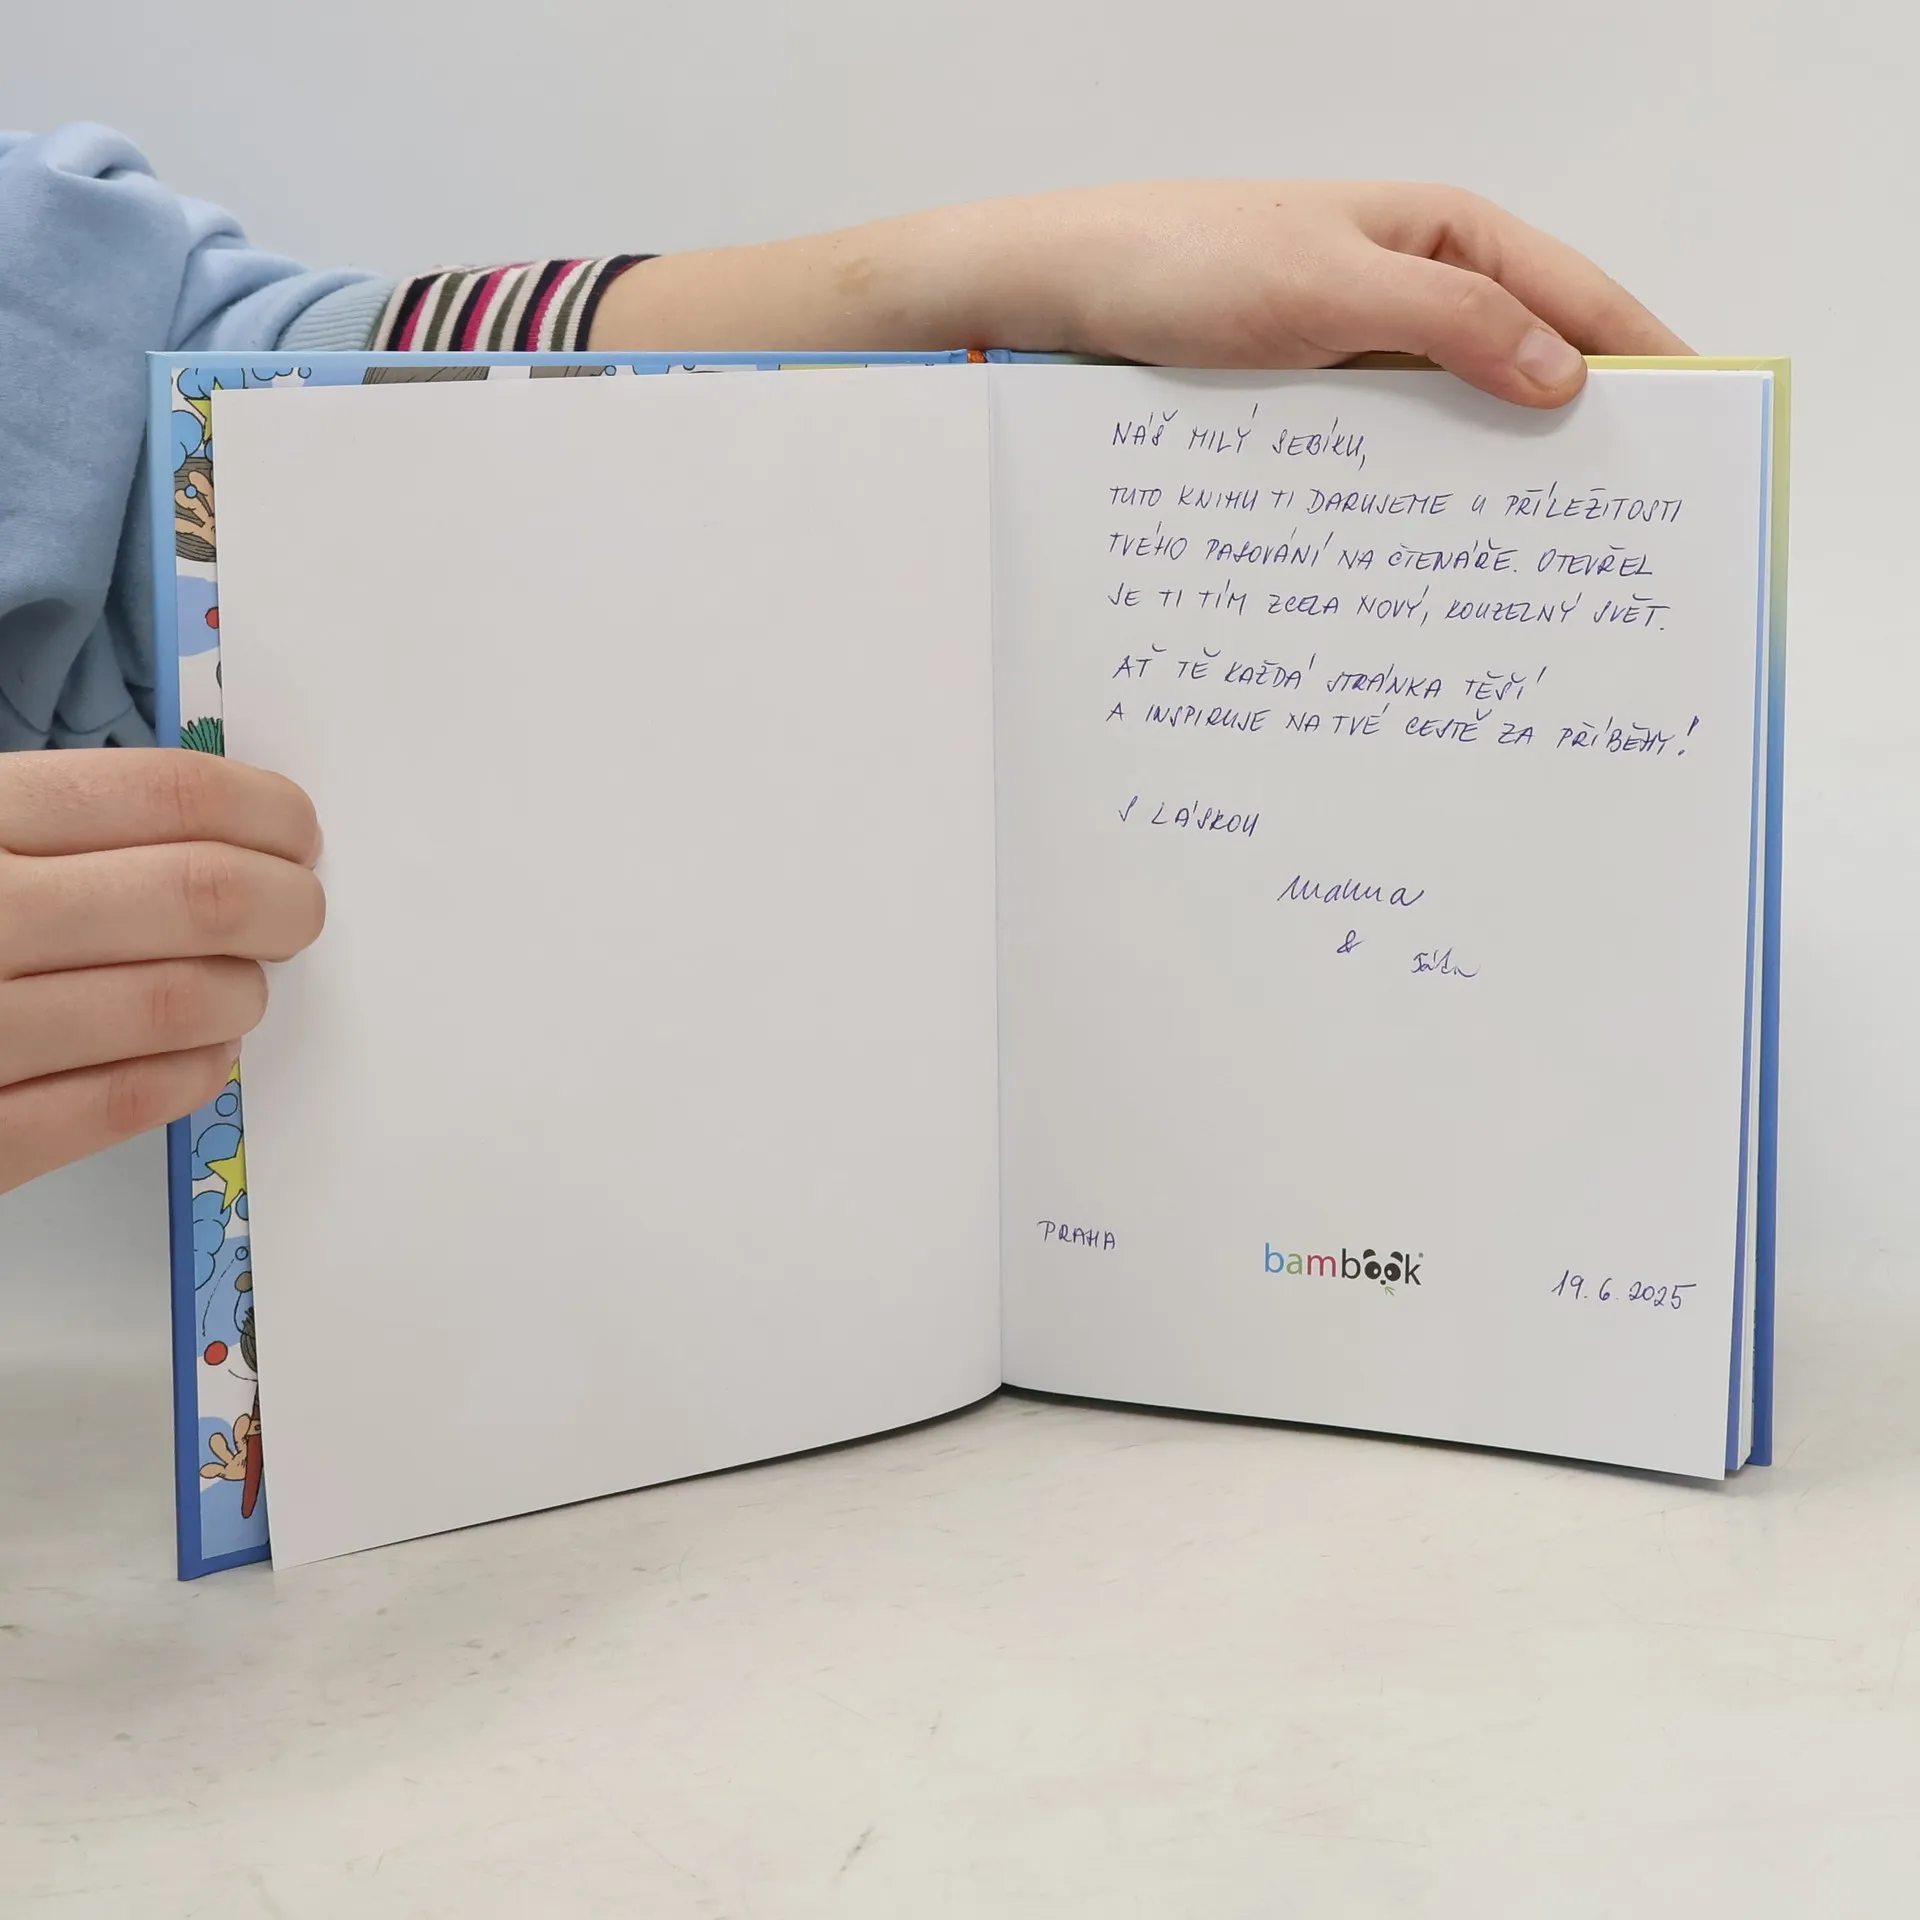 NÁŠ MILÝ SEBÍKU,
TUTO KNIHU TI DARUJEME U PŘÍLEŽITOSTI
TVÉHO PASOVÁNÍ NA ČTENÁŘE. OTEVŘEL
SE TI TÍM ZCELA NOVÝ, KOUZELNÝ SVĚT.
AŤ TĚ KAŽDÁ STRÁNKA TĚŠÍ
A INSPIRUJE NA TVÉ CESTĚ ZA PŘÍBĚHY!
S LÁSKOU
Mamma
&
PRAHA
bambook
19. 6. 2025